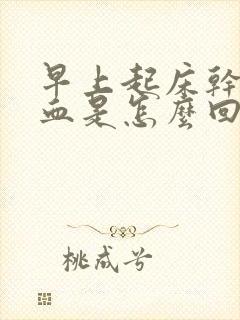 早上起床幹
血是怎麼回
桃成兮